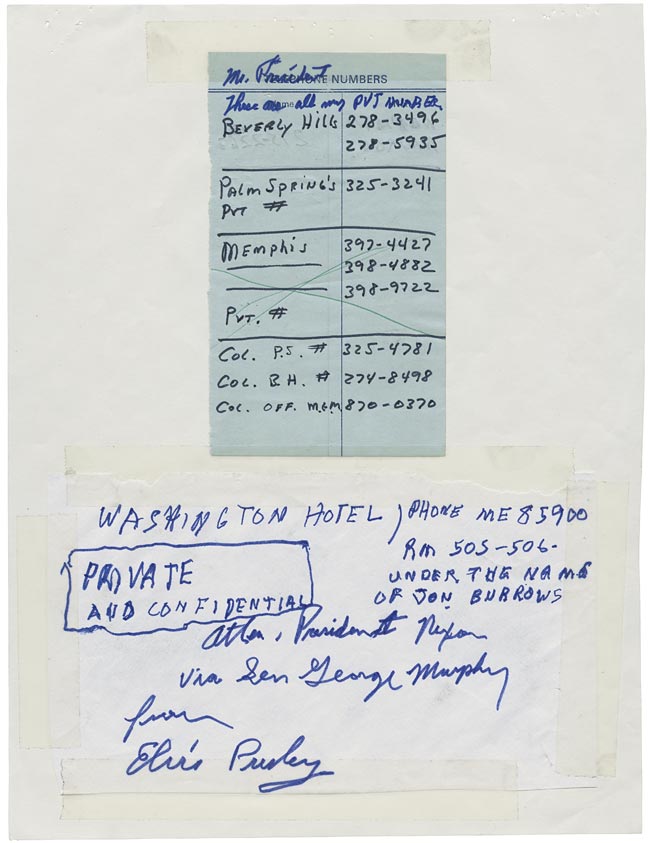 Mr. President
TELEPHONE NUMBERS
These are all my PVT NUMBER
Name
BEVERLY HILLS 278-3496
278-5935
PALM SPRING'S 325-3241
PVT #
MEMPHIS 397-4427
398-4882
398-9722
PVT. #
COL. P.S. # 325-4781
COL. B.H. # 274-8498
COL. OFF. M.G.M. 870-0370
WASHINGTON HOTEL, PHONE ME 85900
RM 505-506.
UNDER THE NAME
OF JON BURROWS
PRIVATE
AND CONFIDENTIAL
Attn. President Nixon
via Sen George Murphy
from
Elvis Presley